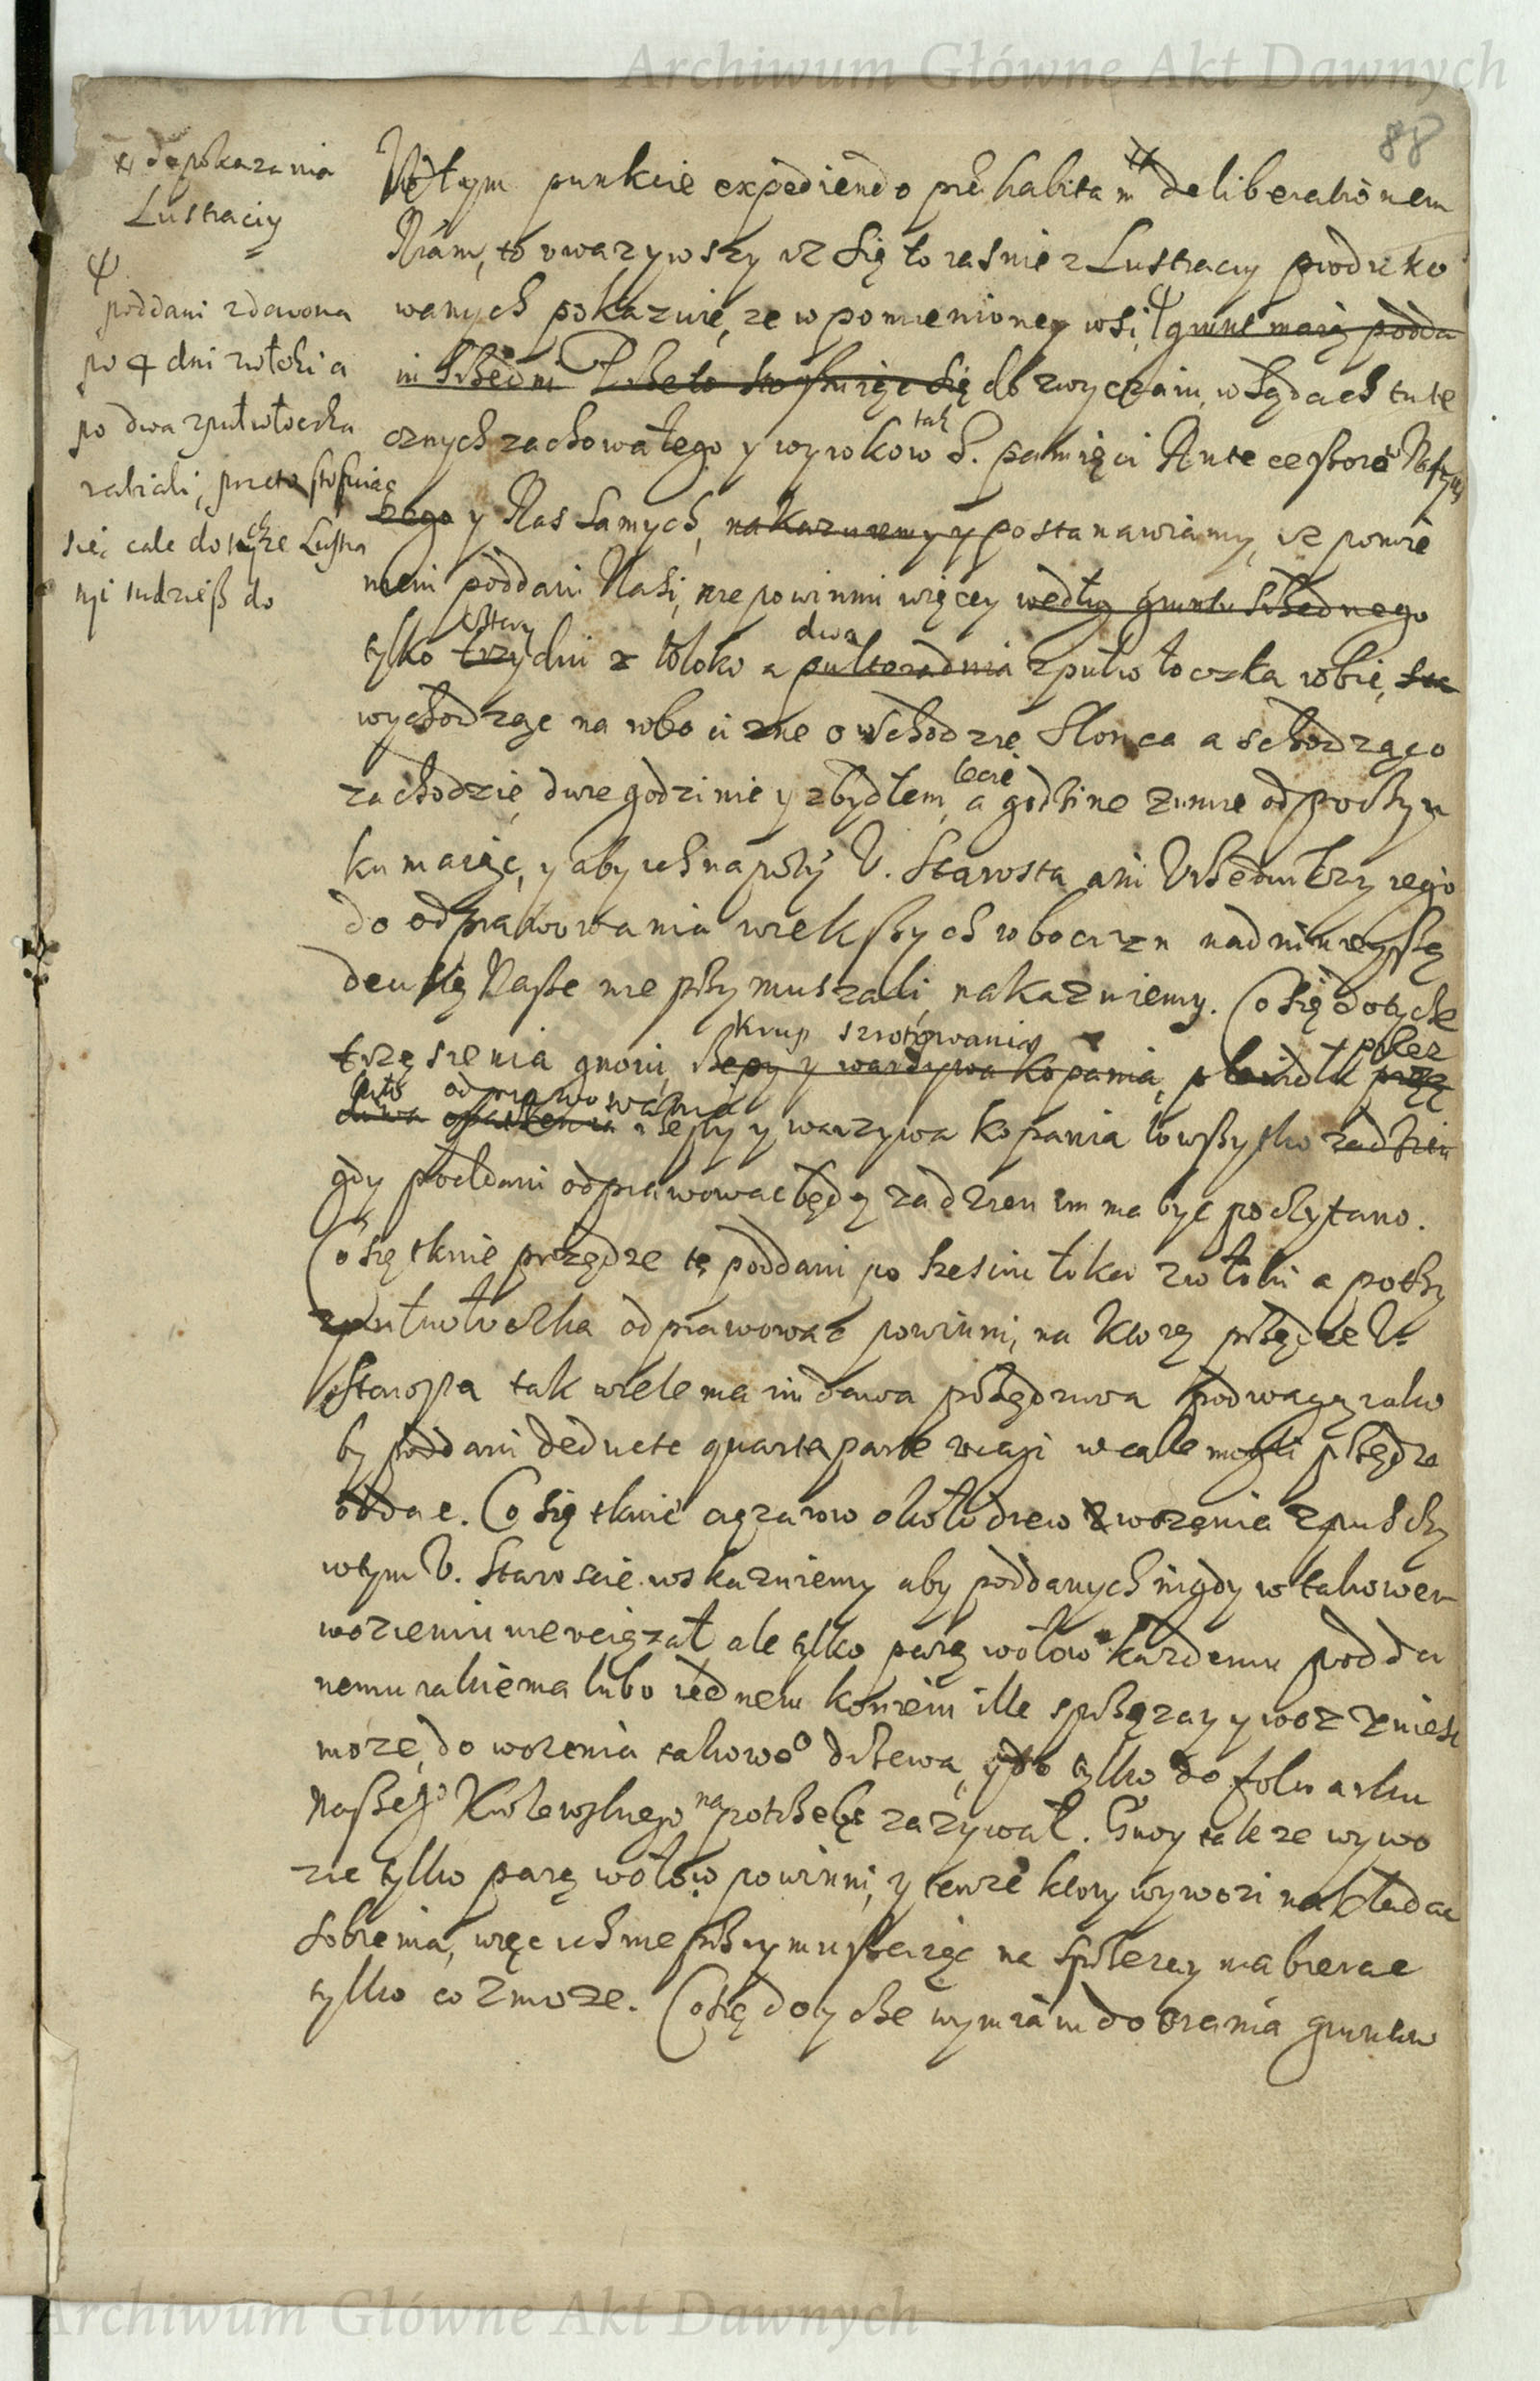 Archiwum Główne Akt Dawnych
88
do pokazania
Lustraciy
ψ
poddani zdawna
po 4 dni z włoki a
po dwa z pułwłoczka
rabiali, przeto stosuiąc
się cale do tychze Lustra
cyi tudzież do
W tym punkcie expediendo praehabitam deliberationem
Nrām, to uwazywszy iz się to iasnie z Lustraciy produko
wanych pokazuie, ze w pomienioney wsi, ψ grunt maią podda
ni sredni Przeto stosuiąc się do zwyczaiu, w sądach tute
cznych zachowałego y wyrokow tak S. pamięci Antecessorow Naszych
szego y Nas samych, nakazuiemy y postanawiamy, iz pomie
nieni poddani Nasi, nie powinni więcey według gruntu srednego
tylko trzy cztery dni z włoki a pułtoradnia dwa z pułwłoczka robić,
wychodząc na robociznę o wschodzie Słonca a schodząc o
zachodzie, dwie godzinie y z bydłem lecie, a godzine zimie odpoczyn
ku maiąc, y aby ich napotÿ U. Starosta ani Urzednikzy iego
do odprawowania wiekszych robocizn nad ninieyszą
decisię Nasze nie przymuszali, nakazuiemy. Co się dotycze
trzęsienia gnoiu, krup szrotowania rzepy y warzywa kopania, przez
rzepy y warzywa kopania to wszystko za dzien
gdy poddani odprawowac będą za dzien im ma byc poczytano.
Co się tknie przędze tę poddani po szesciu łokci z włoki a po trzy
z pułwłoczka odprawować powinni, na ktorą przędze U.
Starosta tak wiele ma im dawac przędziwa pod wagą iako
by poddani deducta quarta parte wagi wcale mogli przędza
oddac. Co się tknie cięzarow około drew wozenia z puszczy
w tym U. Staroscie wskazuiemy aby poddanych nigdy w takowem
wozeniu nie uciązał ale tylko parą wołow kazdemu podda
nemu iakiema lubo iednem koniem ille sprzęzay y woz zniesc
moze, do wozenia takowo drzewa, tylko do folwarku
Naszego Krolewskiego na potrzebę zazywał. Gnoy takze wywo
zic tylko parą wołow powinni, y tenze ktory wywozi nakładac
sobie ma, więc ich nie przymuszaiąc na sprzezay ma bierac
tylko co zmoze. Co się dotycze wymiaru do orania gruntow
Archiwum Główne Akt Dawnych